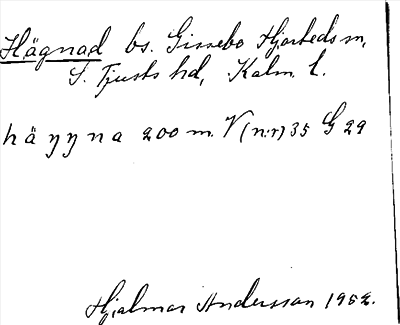 Hägnad bs. Gissebo Hjorteds sn,
S. Tjusts hd, Kalm. l.
häŋŋna 200 m. V (n:r) 35 G 29
Hjalmar Andersson 1952.